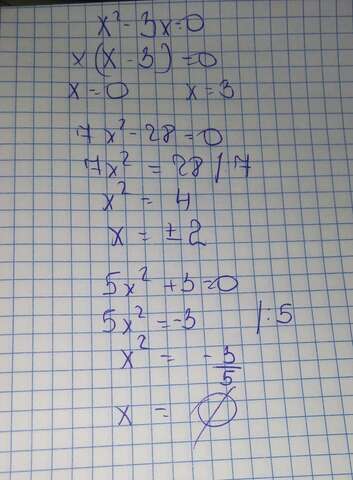 x² - 3x = 0
x(x - 3) = 0
x = 0 x = 3
7x² - 28 = 0
7x² = 28 /:7
x² = 4
x = ±2
5x² + 3 = 0
5x² = -3 /:5
x² = -3/5
x = ∅